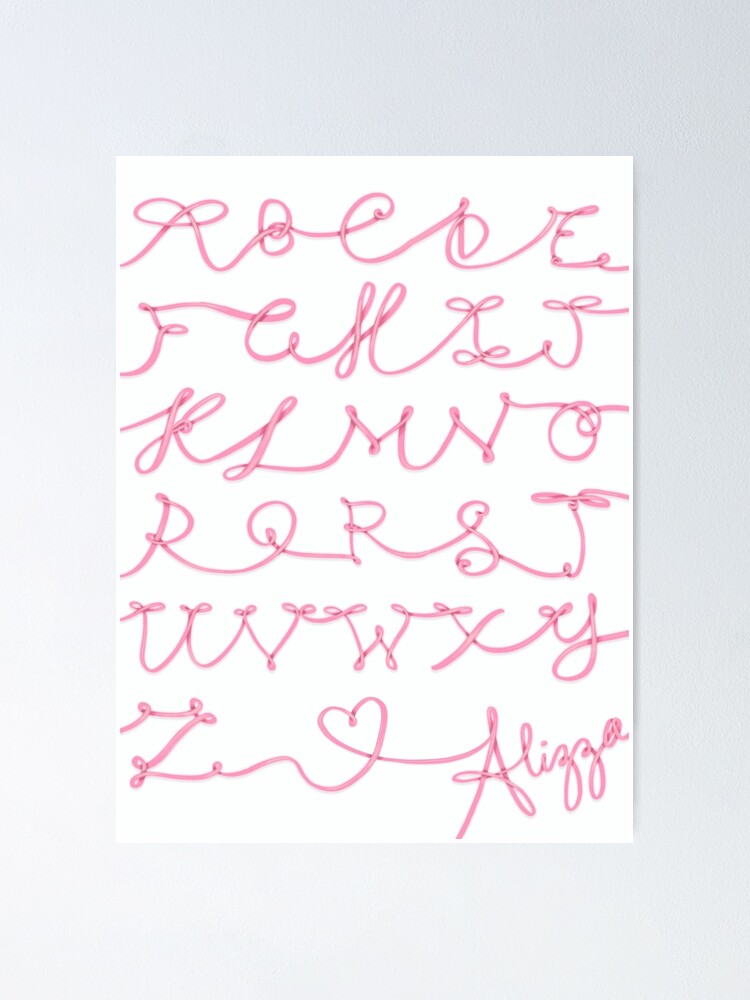 ABCDE
FGHIJ
KLMNO
PQRST
UVWXY
Z Alizza